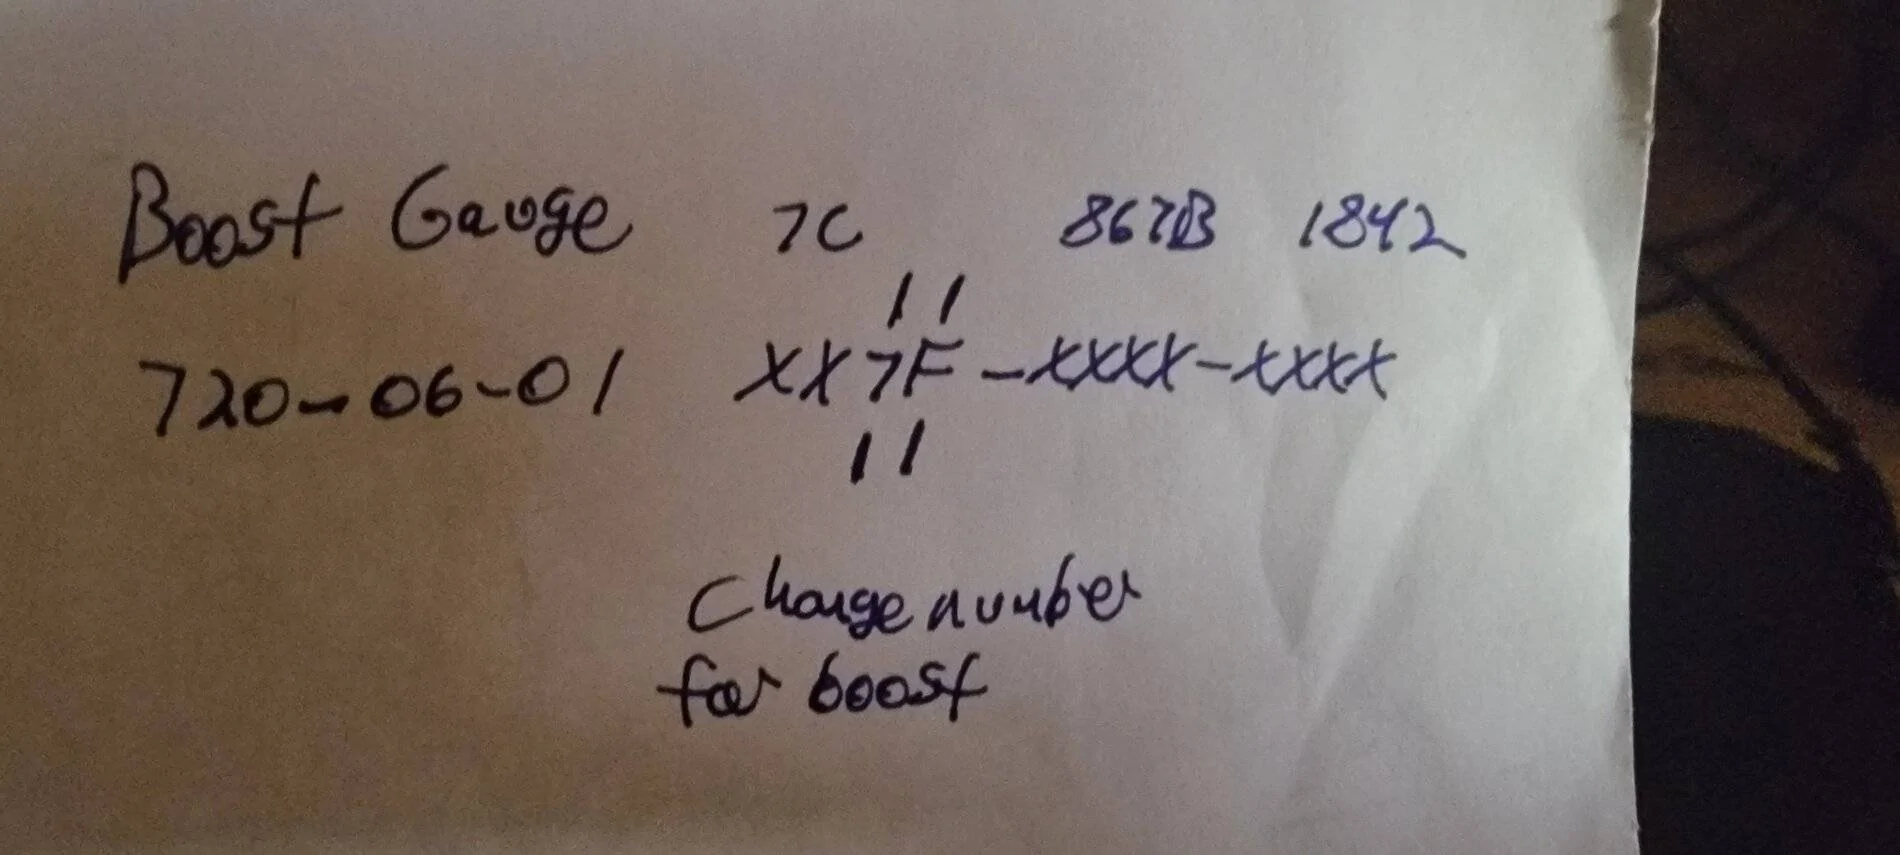 Boost Gauge 7C 867B 1842
11
720-06-01 XX7F-XXXX-XXXX
11
Change number
for boost